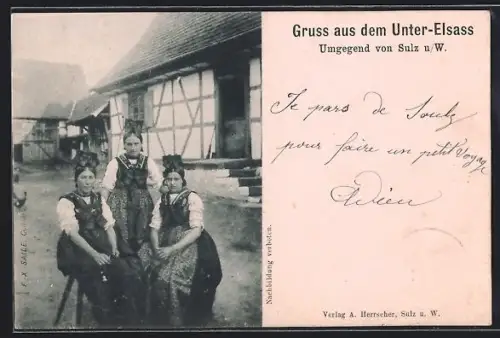 Gruss aus dem Unter-Elsass
Umgegend von Sulz u/W.
Je pars de Soultz
pour faire un petit voyage
Adieu
F. X. SAILE
Nachbildung verboten.
Verlag A. Herrscher, Sulz u. W.